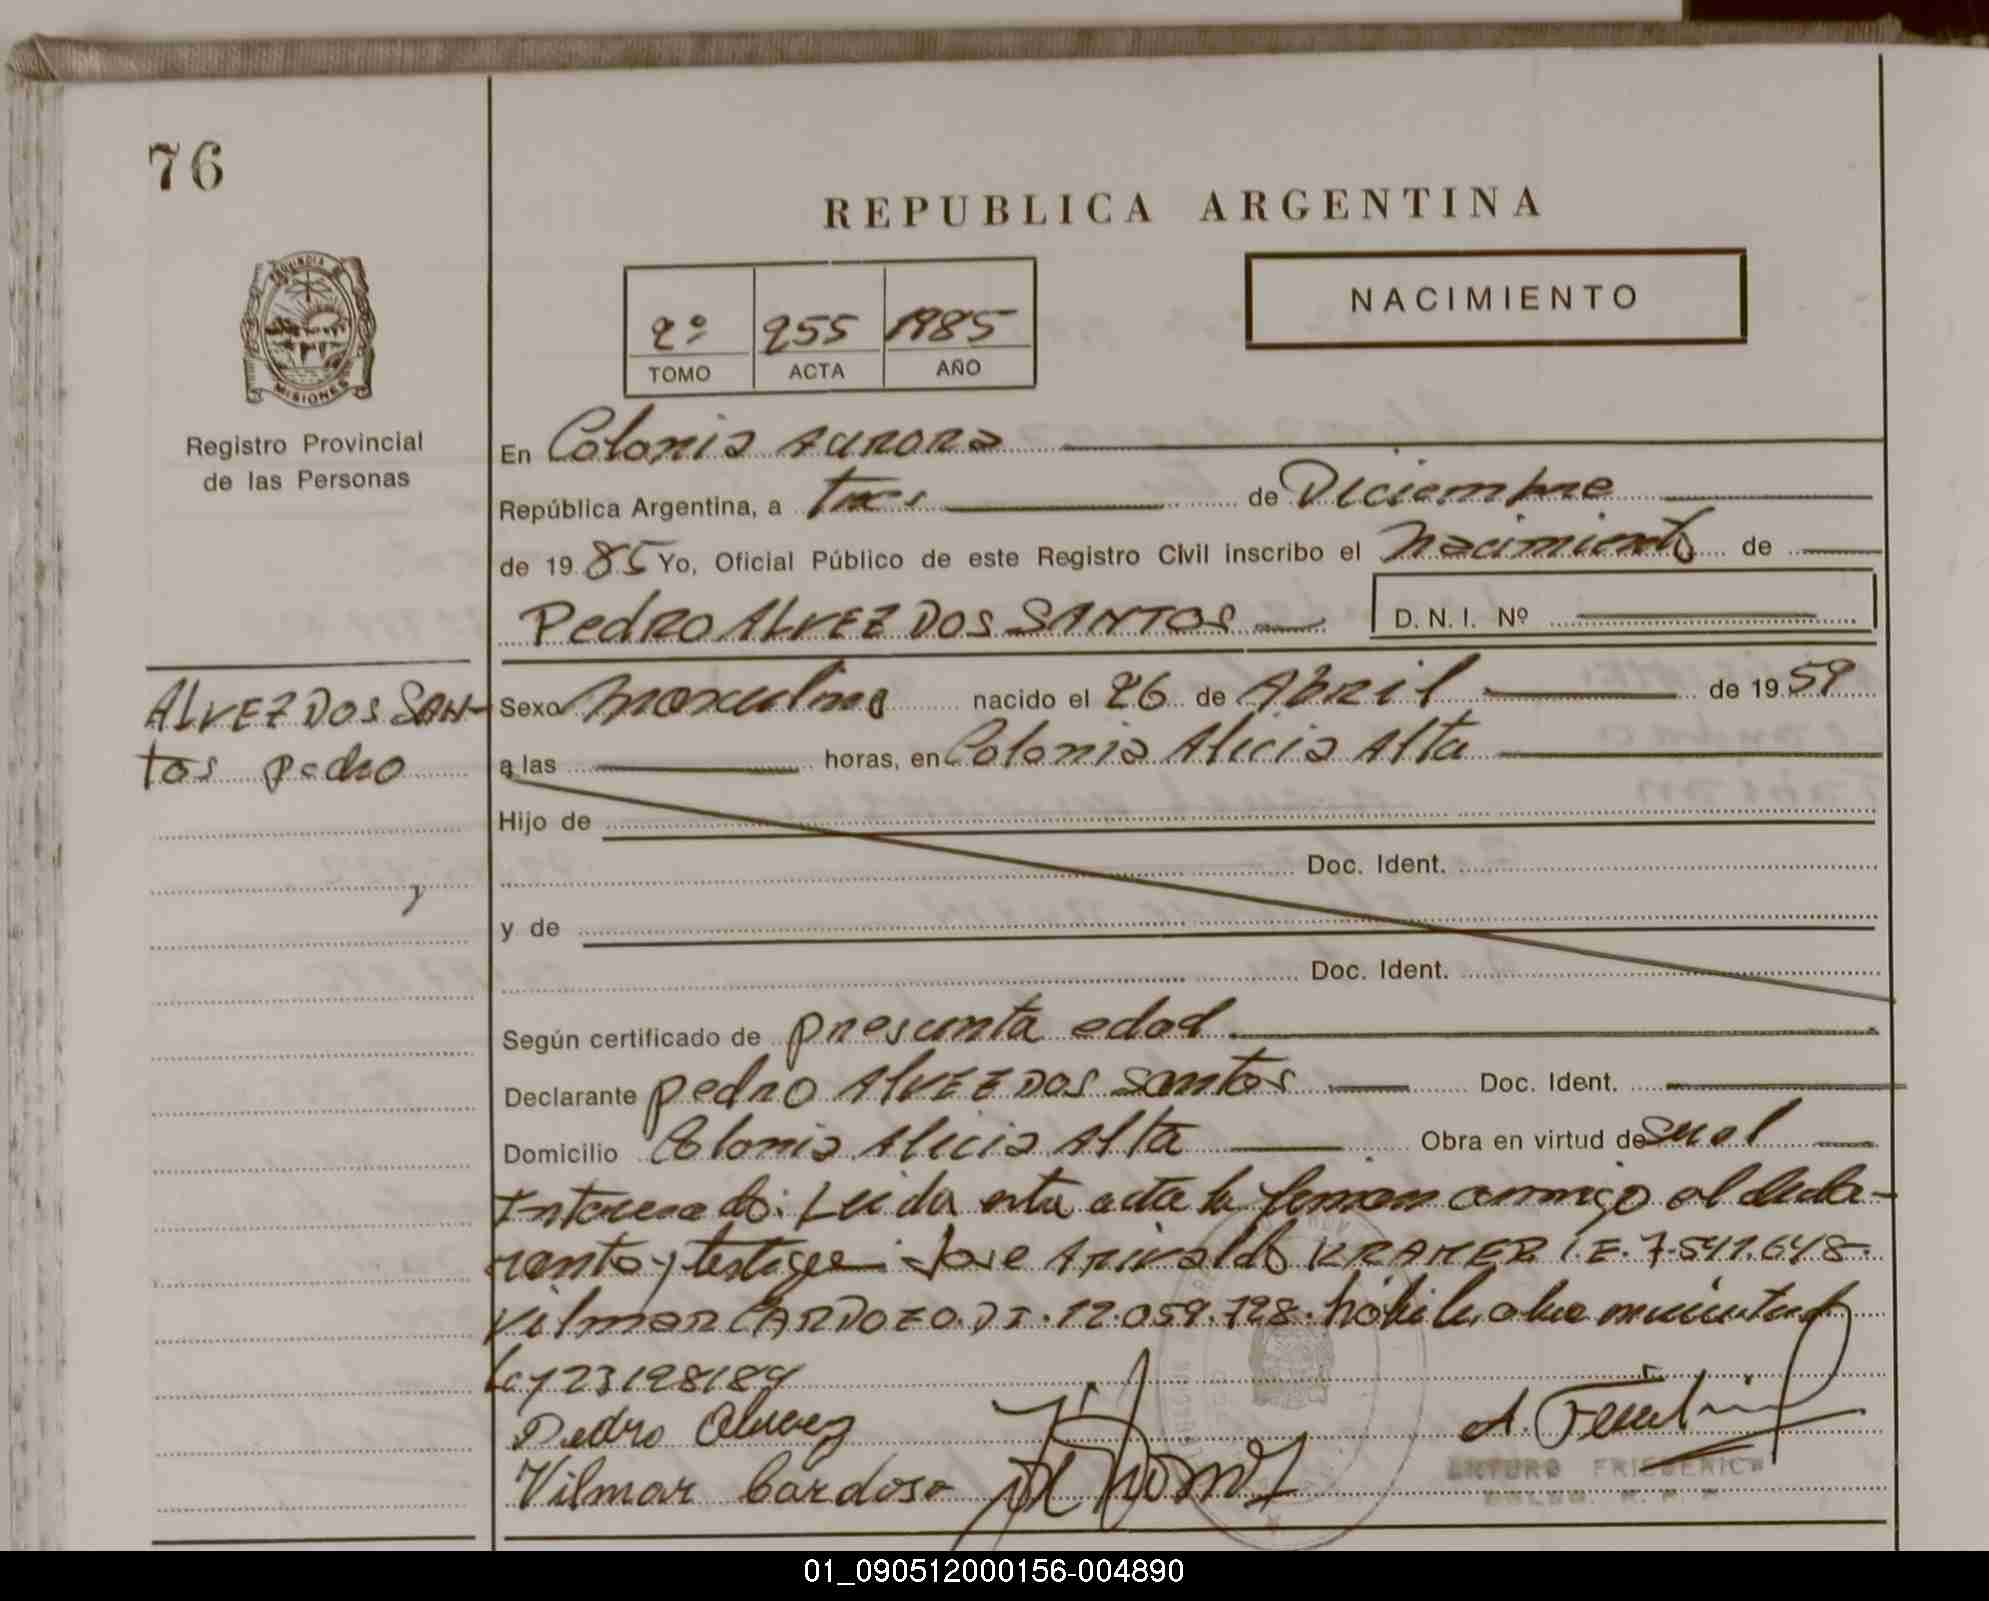 76
REPUBLICA ARGENTINA
NACIMIENTO
2º 255 1985
TOMO ACTA AÑO
PROVINCIA DE
MISIONES
Registro Provincial
de las Personas
En Colonia Aurora
República Argentina, a tres de Diciembre
de 19 85 Yo, Oficial Público de este Registro Civil inscribo el Nacimiento de
Pedro ALVEZ DOS SANTOS D.N.I. Nº
ALVEZ DOS SAN-
tos pedro
Sexo masculino nacido el 26 de Abril de 19 59
a las horas, en Colonia Alicia Alta
Hijo de
Doc. Ident.
y de
Doc. Ident.
Según certificado de presunta edad
Declarante pedro ALVEZ DOS Santos Doc. Ident.
Domicilio Colonia Alicia Alta Obra en virtud de su ol
Interesado: Leida esta acta la firman conmigo el decla-
rante y testigos: Jose Arivaldo KRAMER I.E. 7.541.648.
Vilmar CARDOZO D.I. 12.059.728. hábiles obra en virtud
Ley 23198/84
Pedro Alvez
Vilmar Cardoso
ARTURO FRIEDERICH
01_090512000156-004890